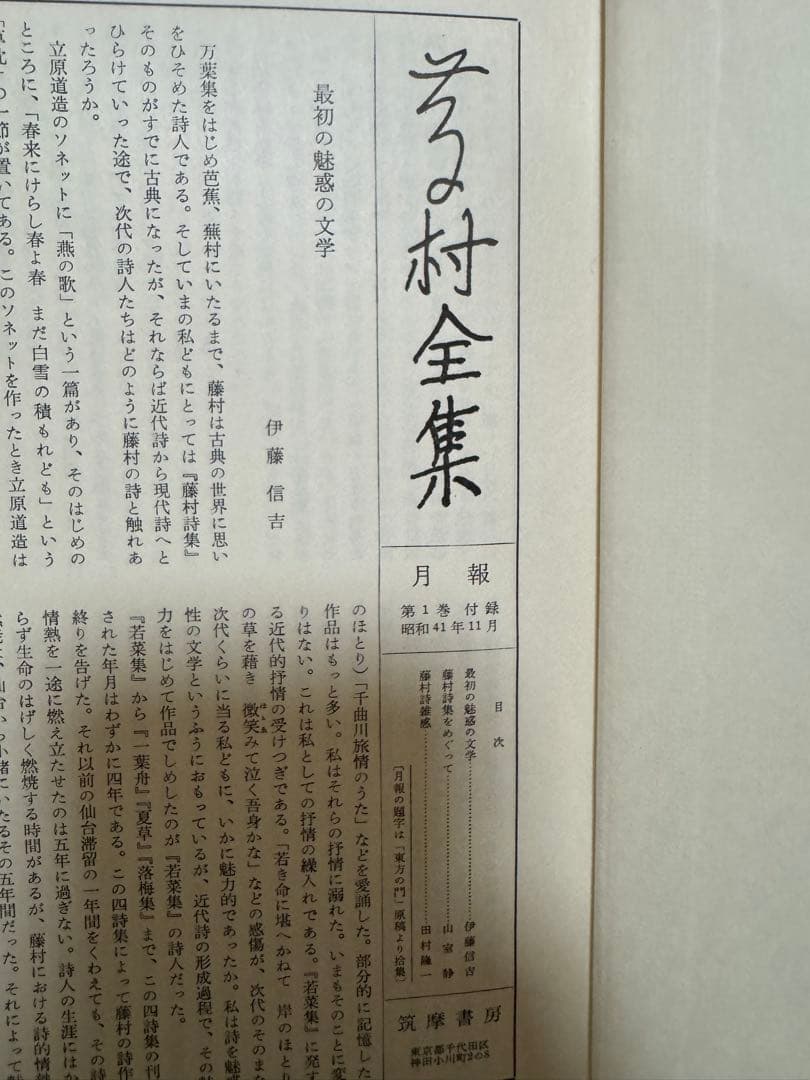 藤村全集
月報
第1巻付録
昭和41年11月
目次
最初の魅惑の文学……………………伊藤信吉
藤村詩集をめぐって…………………山室静
藤村詩雑感……………………………田村隆一
〔月報の題字は「東方の門」原稿より拾集〕
筑摩書房
東京都千代田区
神田小川町2の8
最初の魅惑の文学
伊藤信吉
万葉集をはじめ芭蕉、蕪村にいたるまで、藤村は古典の世界に思い
をひそめた詩人である。そしていまの私どもにとっては『藤村詩集』
そのものがすでに古典になったが、それならば近代詩から現代詩へと
ひらけていった途で、次代の詩人たちはどのように藤村の詩と触れあ
ったろうか。
立原道造のソネットに「燕の歌」という一篇があり、そのはじめの
ところに、「春来にけらし春よ春 まだ白雪の積もれども」という
の一節が置いてある。このソネットを作ったとき立原道造は
のほとり)「千曲川旅情のうた」などを愛誦した。部分的に記憶した
作品はもっと多い。私はそれらの抒情に溺れた。いまもそのことに変
りはない。これは私としての抒情の繰入れである。『若菜集』に発す
る近代的抒情の受けつぎである。「若き命に堪へかねて 岸のほとり
の草を藉き 微笑みて泣く吾身かな」などの感傷が、次代のそのまた
次代くらいに当る私どもに、いかに魅力的であったか。私は詩を魅惑
性の文学というふうにおもっているが、近代詩の形成過程で、その魅
力をはじめて作品でしめしたのが『若菜集』の詩人だった。
『若菜集』から『一葉舟』『夏草』『落梅集』まで、この四詩集の刊
された年月はわずかに四年である。この四詩集によって藤村の詩作
終りを告げた。それ以前の仙台滞留の一年間をくわえても、その詩
情熱を一途に燃え立たせたのは五年に過ぎない。詩人の生涯にはか
らず生命のはげしく燃焼する時間があるが、藤村における詩的情熱
仙台から小諸にいたるその五年間だった。それによって